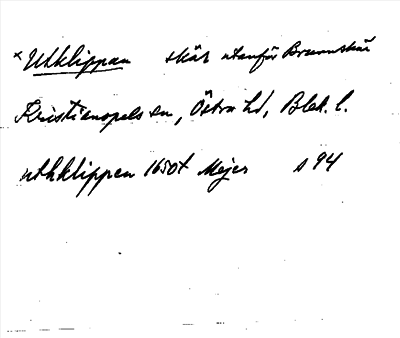 ×Utklippan skär utanför Brunnskär
Kristianopels sn, Östra hd, Blek. l.
utkklippen 1650t Mejer s 94